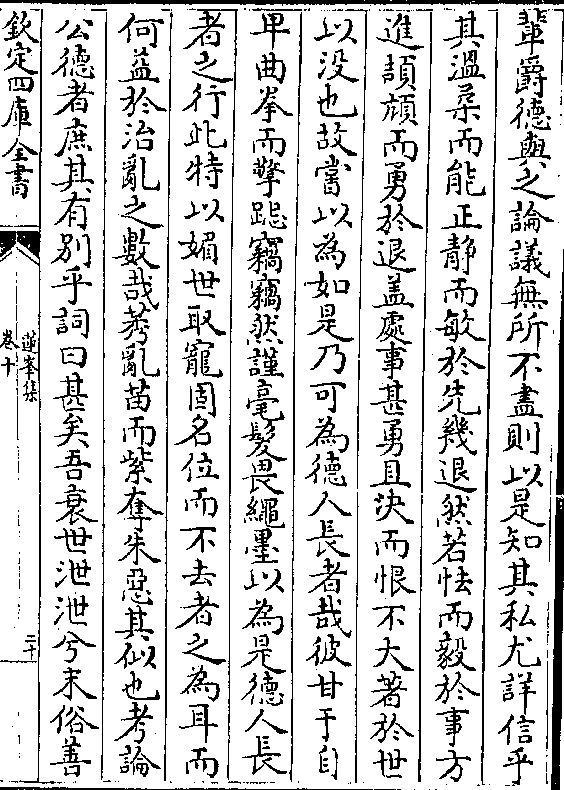 輩爵德與之論議無所不盡則以是知其私尤詳信乎
其溫柔而能正静而敏於先幾退然若怯而毅於事方
進頡頏而勇於退盖處事甚勇且决而恨不大著於世
以没也故嘗以為如是乃可為德人長者哉彼甘于自
卑曲拳而擎跽竊竊然謹毫髮畏繩墨以為是德人長
者之行此特以媚世取寵固名位而不去者之為耳而
何益於治亂之數哉莠亂苗而紫奪朱惡其似也考論
公德者庶其有别乎詞曰甚矣吾衰世泄泄兮末俗善
欽定四庫全書
蓮峯集
卷十
三十